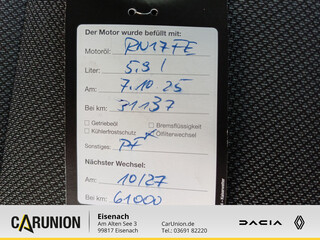 Der Motor wurde befüllt mit:
Motoröl: RN17FE
Liter: 5.9 l
Am: 7.10 25
Bei km: 31137
Getriebeöl Bremsflüssigkeit
Kühlerfrostschutz Ölfilterwechsel
Sonstiges: PF
Nächster Wechsel:
Am: 10/27
Bei km: 61000
CARUNION
Eisenach
Am Alten See 3
99817 Eisenach
CarUnion.de
Tel.: 03691 82220
DACIA